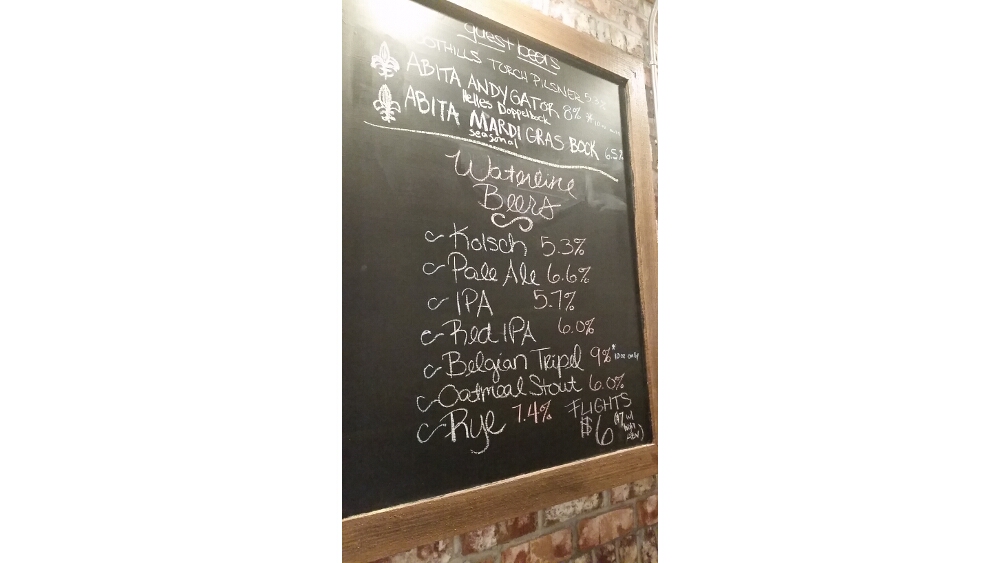 guest beers
OTHILLS TORCH PILSNER 5.3%
ABITA ANDYGATOR 8% *10oz only
Helles Doppelbock
ABITA MARDI GRAS BOCK 6.5%
seasonal
Waterline
Beers
Kolsch 5.3%
Pale Ale 6.6%
IPA 5.7%
Red IPA 6.0%
Belgian Tripel 9% *10oz only
Oatmeal Stout 6.0%
Rye 7.4%
FLIGHTS
$6